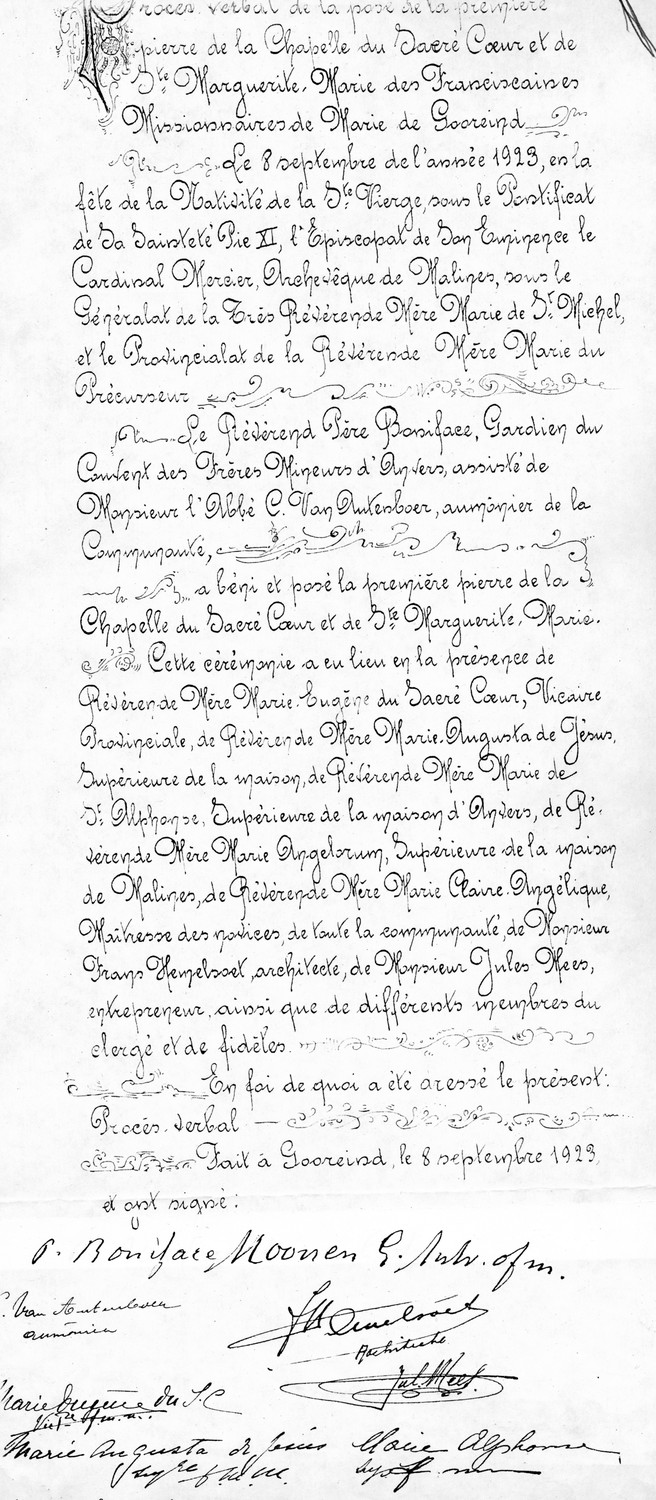 Procès. verbal de la pose de la première
pierre de la Chapelle du Sacré Cœur et de
Ste Marguerite. Marie des Franciscaines
Missionnaires de Marie de Gooreind
Le 8 septembre de l'année 1923, en la
fête de la Nativité de la Ste Vierge, sous le Pontificat
de Sa Sainteté Pie XI, l'Episcopat de Son Eminence le
Cardinal Mercier, Archevêque de Malines, sous le
Généralat de la Très Révérende Mère Marie de St Michel,
et le Provincialat de la Révérende Mère Marie du
Précurseur
Le Révérend Père Boniface, Gardien du
Couvent des Frères Mineurs d'Anvers, assisté de
Monsieur l'Abbé C. Van Autenboer, aumônier de la
Communauté,
a béni et posé la première pierre de la
Chapelle du Sacré Cœur et de Ste Marguerite. Marie.
Cette cérémonie a eu lieu en la présence de
Révérende Mère Marie. Eugène du Sacré Cœur, Vicaire
Provinciale, de Révérende Mère Marie. Augusta de Jésus,
Supérieure de la maison, de Révérende Mère Marie de
St Alphonse, Supérieure de la maison d'Anvers, de Ré-
vérende Mère Marie Angelorum, Supérieure de la maison
de Malines, de Révérende Mère Marie Claire. Angélique,
Maîtresse des novices, de toute la communauté, de Monsieur
Frans Hemelsoet, architecte, de Monsieur Jules Mees,
entrepreneur, ainsi que de différents membres du
clergé et de fidèles.
En foi de quoi a été dressé le présent:
Procès. verbal
Fait à Gooreind, le 8 septembre 1923,
et ont signé:
P. Boniface Moonen G. Antv. ofm.
C. Van Autenboer
aumônier
Hemelsoet
Architecte
Jul. Mees
Marie Eugène du S.C
Marie Augusta de Jésus Marie Alphonse